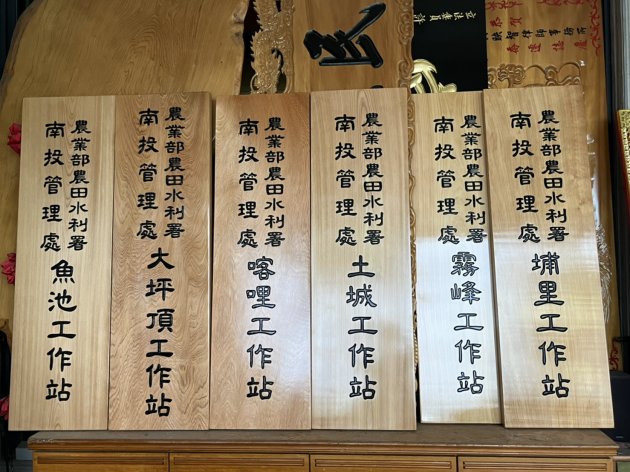 農業部農田水利署
南投管理處
埔里工作站
農業部農田水利署
南投管理處
霧峰工作站
農業部農田水利署
南投管理處
土城工作站
農業部農田水利署
南投管理處
喀哩工作站
農業部農田水利署
南投管理處
大坪頂工作站
農業部農田水利署
南投管理處
魚池工作站
恭賀
律師事務所
立法委員